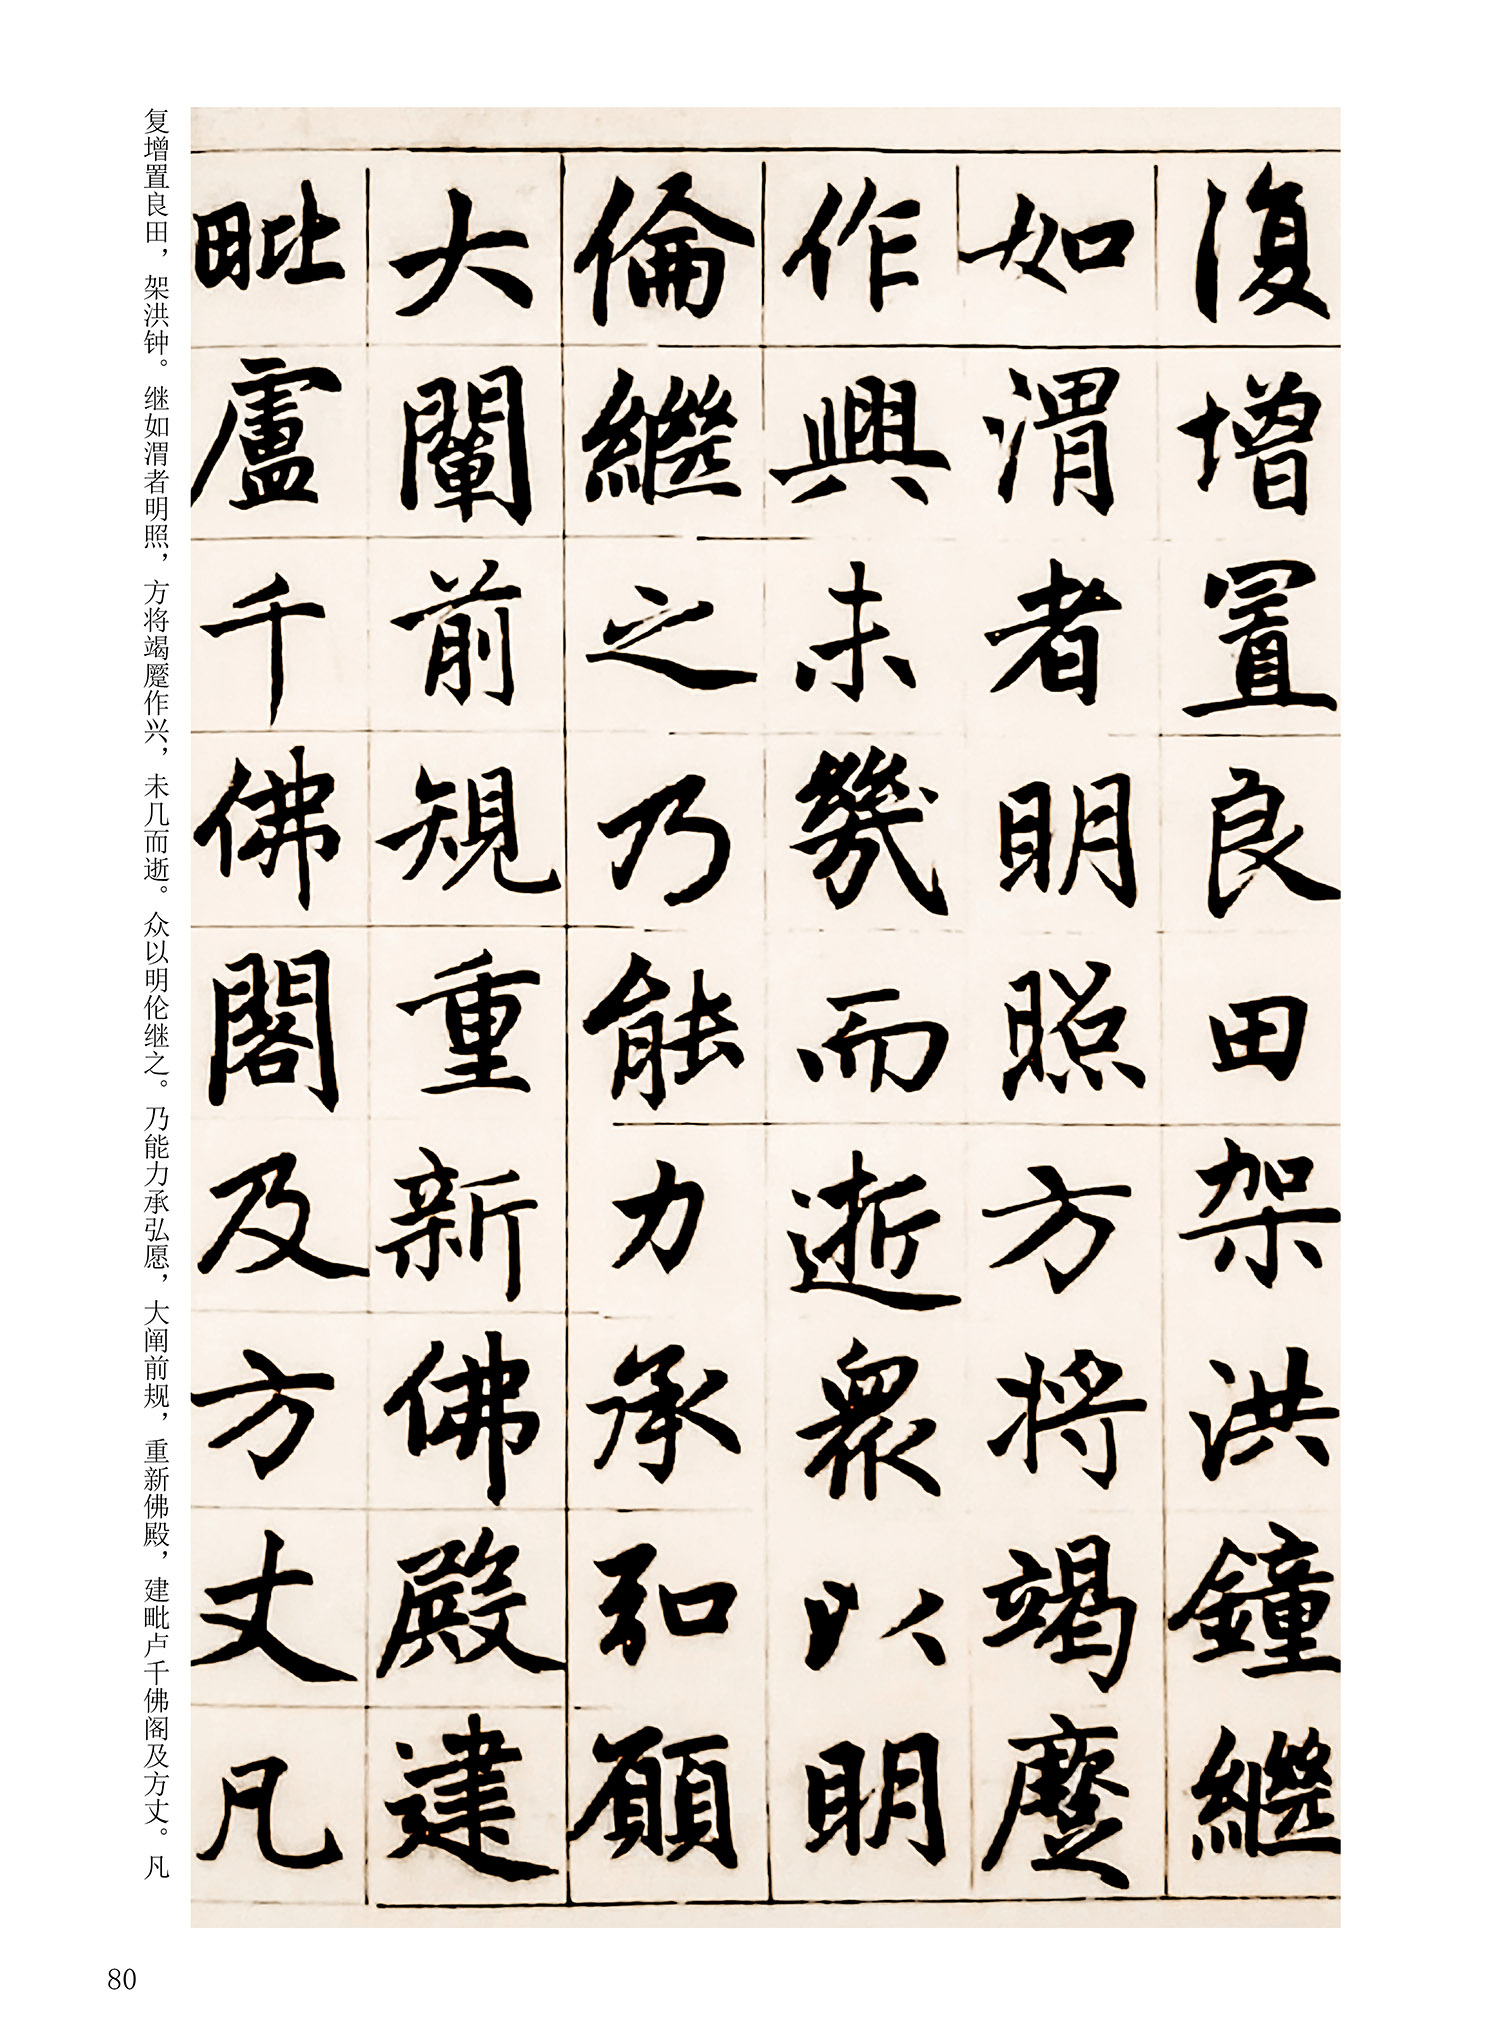 復增置良田架洪鐘繼
如渭者明照方将竭蹷
作興未幾而逝衆以明
倫繼之乃能力承弘願
大闡前規重新佛殿建
毗盧千佛閣及方丈凡
复增置良田，架洪钟。继如渭者明照，方将竭蹷作兴，未几而逝。众以明伦继之。乃能力承弘愿，大阐前规，重新佛殿，建毗卢千佛阁及方丈。凡
80